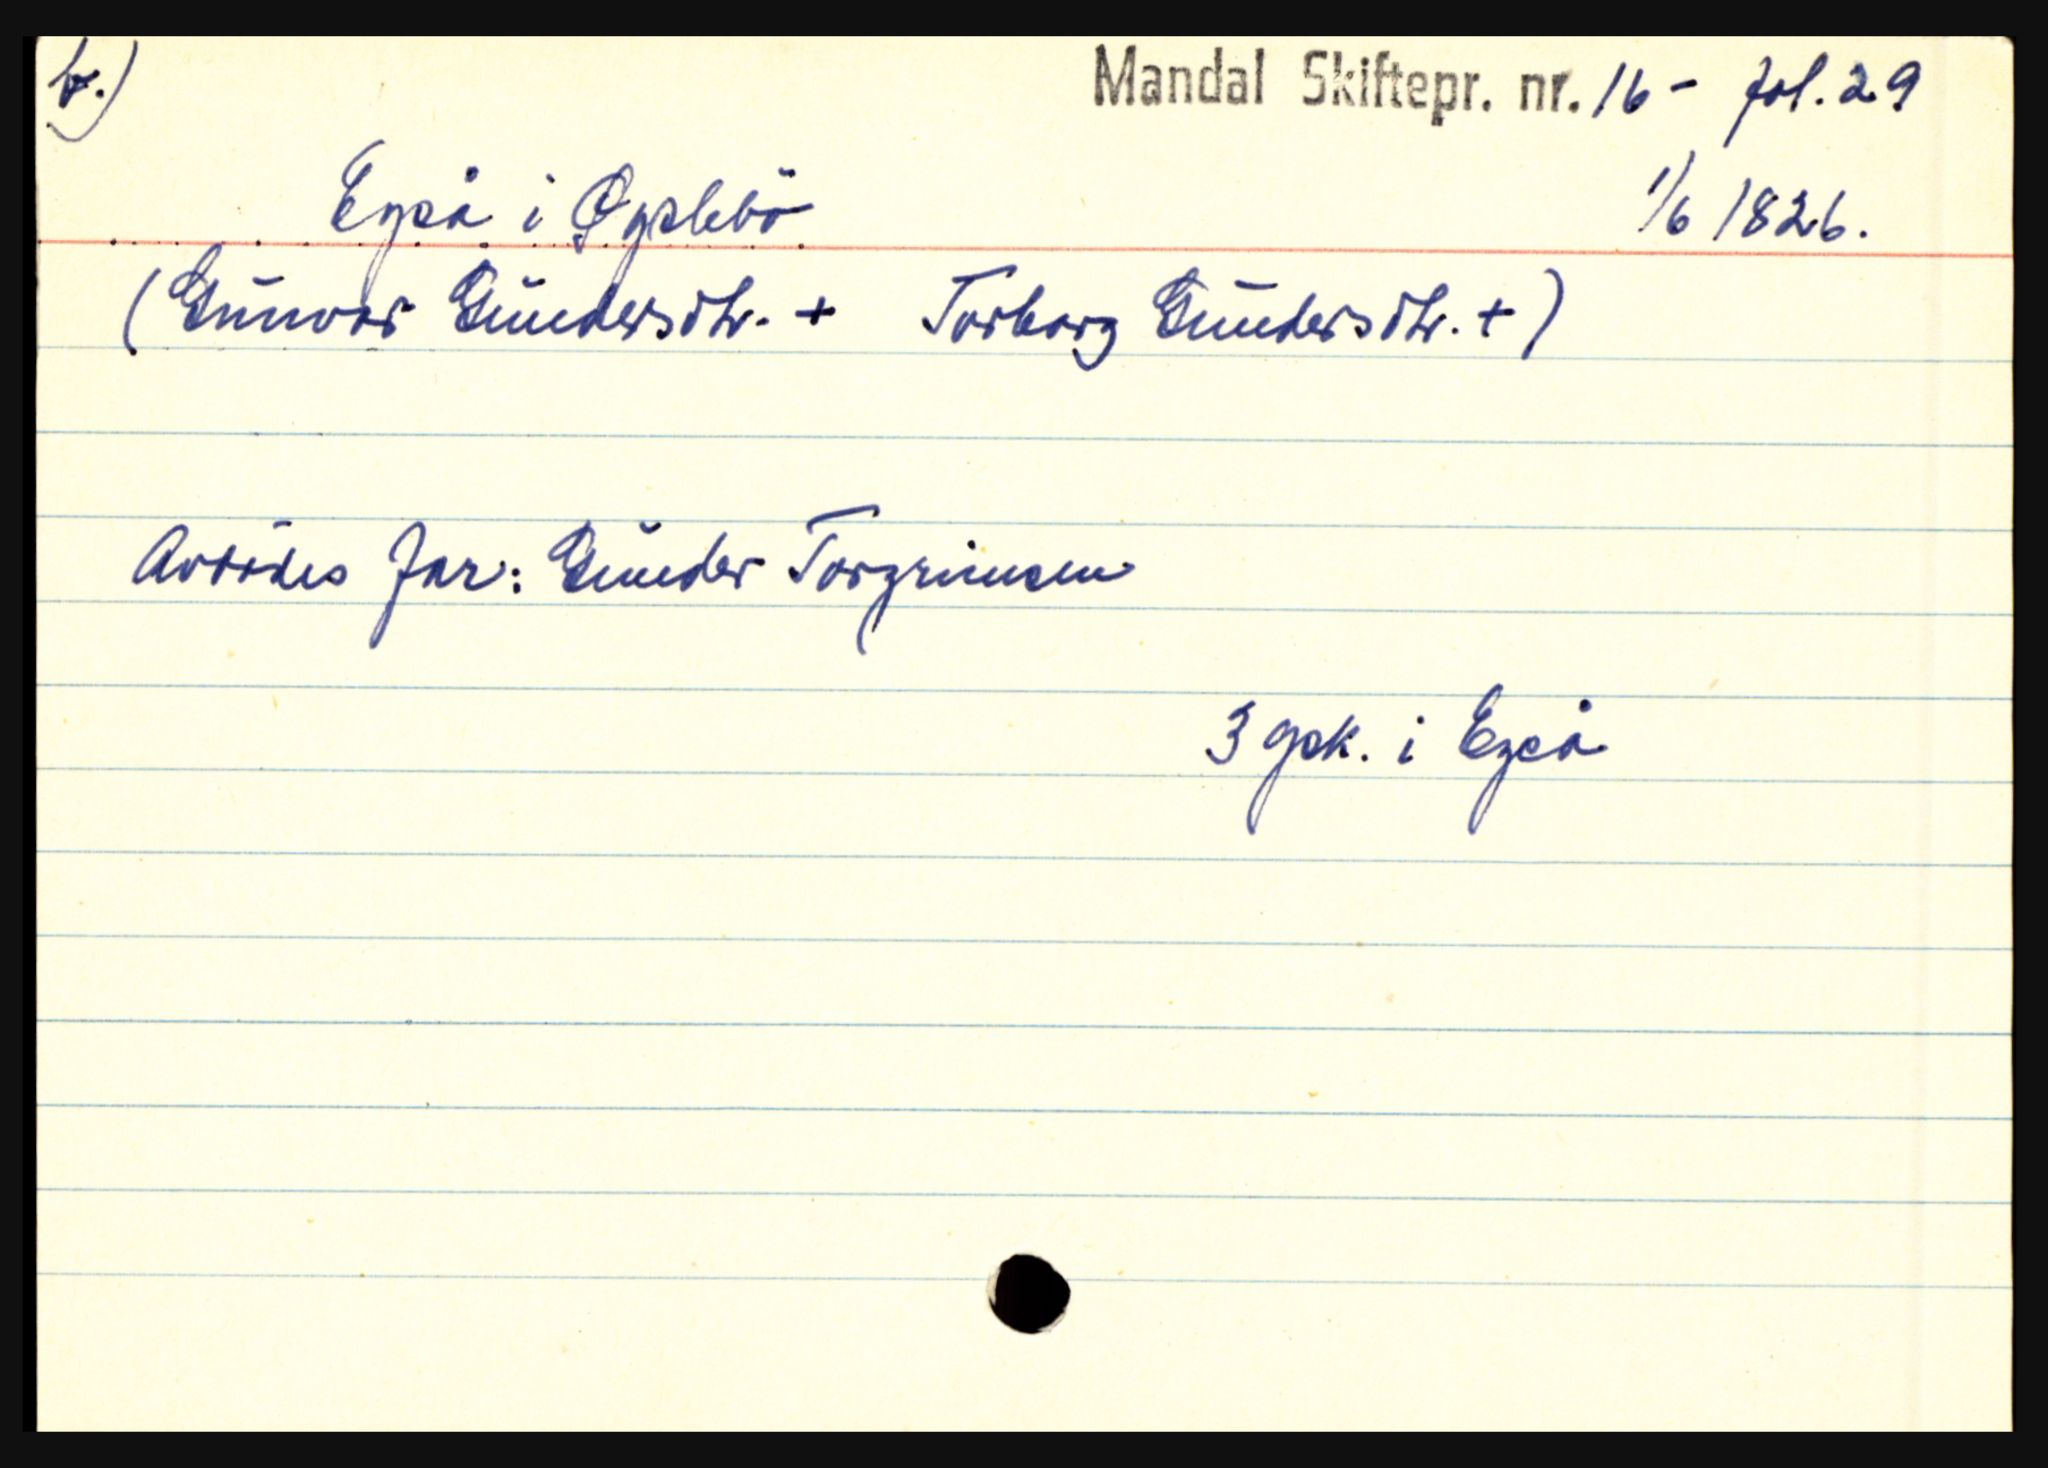 b.) Mandal Skiftepr. nr. 16 - fol. 29
Egså i Øyslebö 1/6 1826.
(Gunvor Gundersdtr. + Torborg Gundersdtr. +)
Avdödes far: Gunder Torgrimsen
3 gsk. i Egså